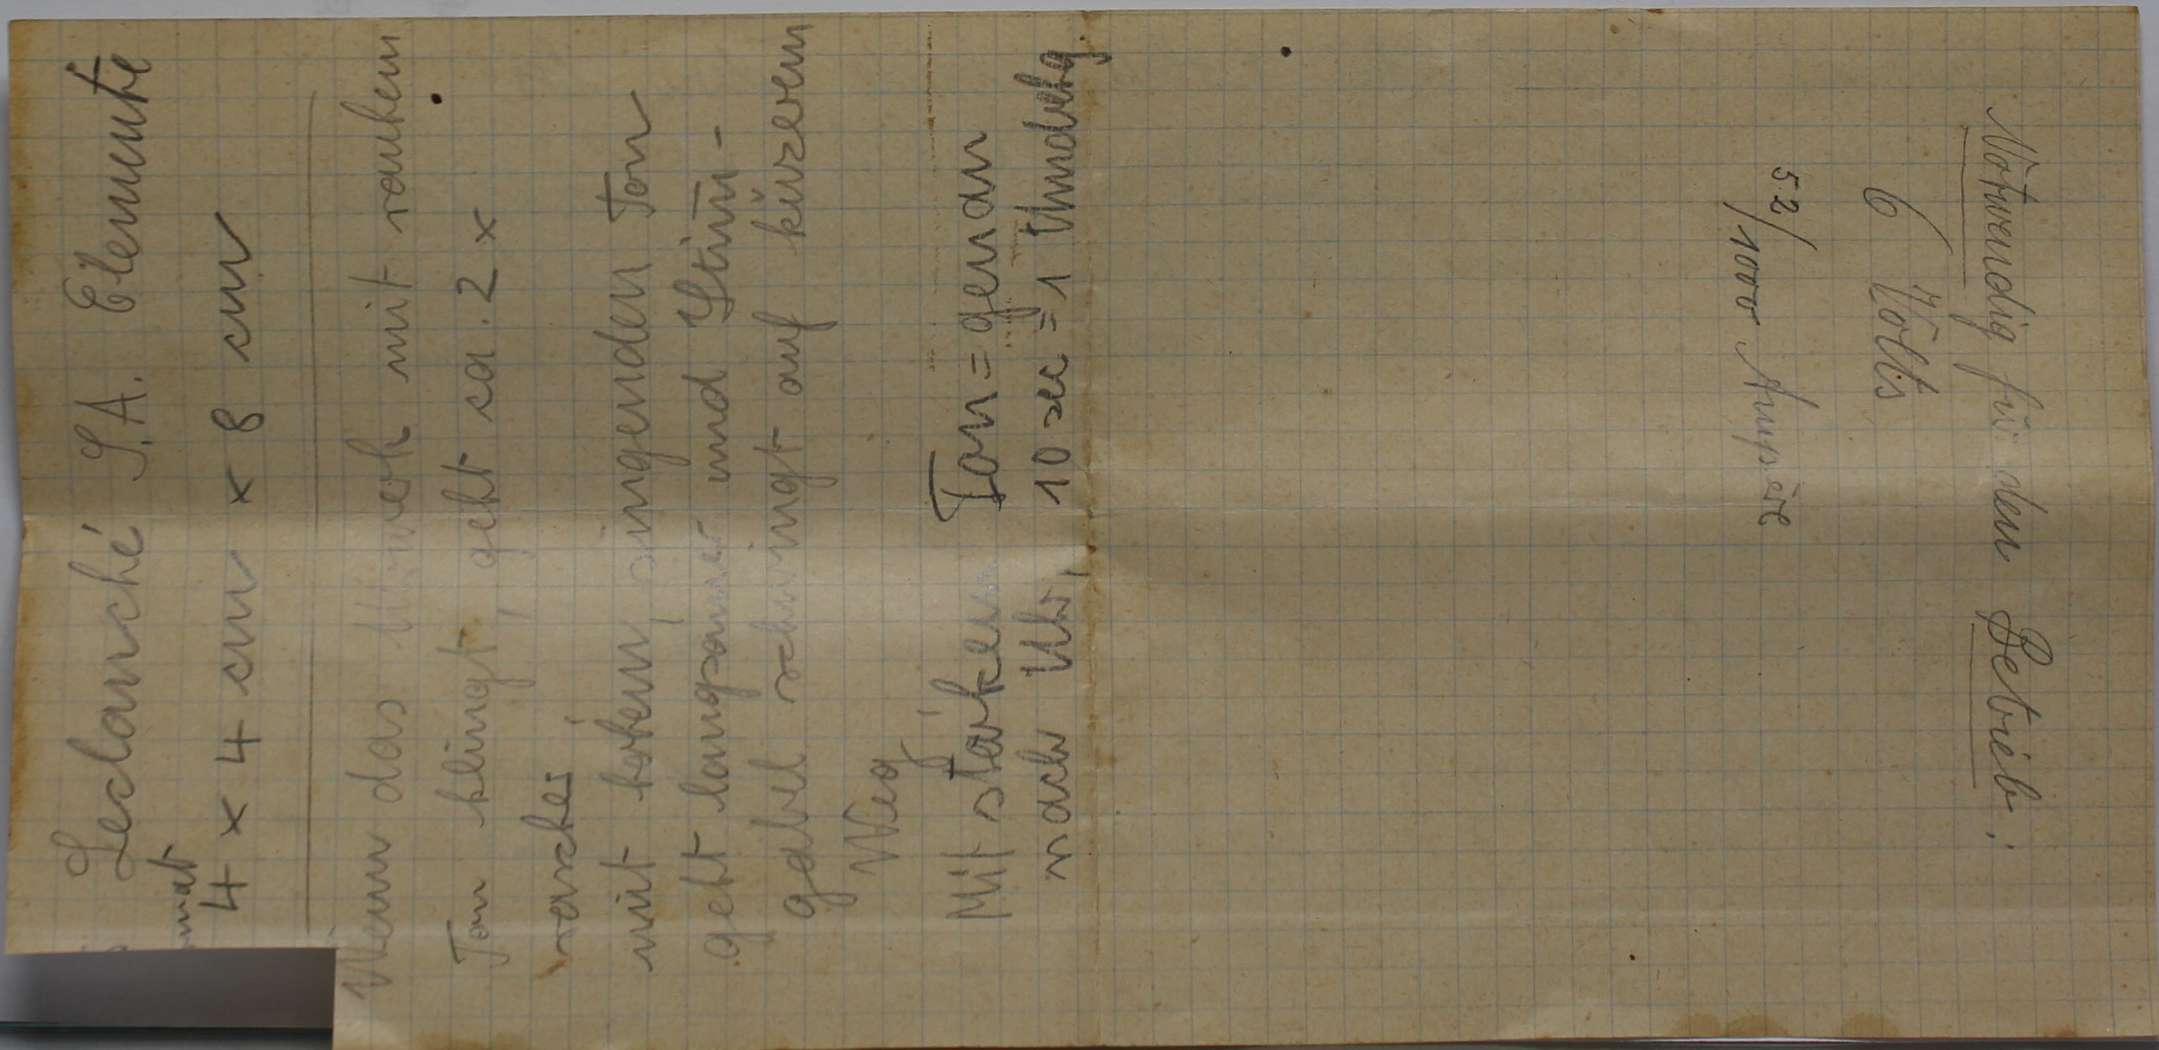 Leclanché S.A. Elemente
4 x 4 cm x 8 cm
Wenn das Uhrwerk mit rauhem
Ton klingt, geht ca. 2 x
rascher
mit hohem, singenden Ton
geht langsamer und Stimm-
gabel schwingt auf kürzerem
Weg
Mit starkem Ton = genau
nach Uhr, 10 sec = 1 Umdrehg.
Notwendig für den Betrieb:
6 Volts
52/1000 Ampère